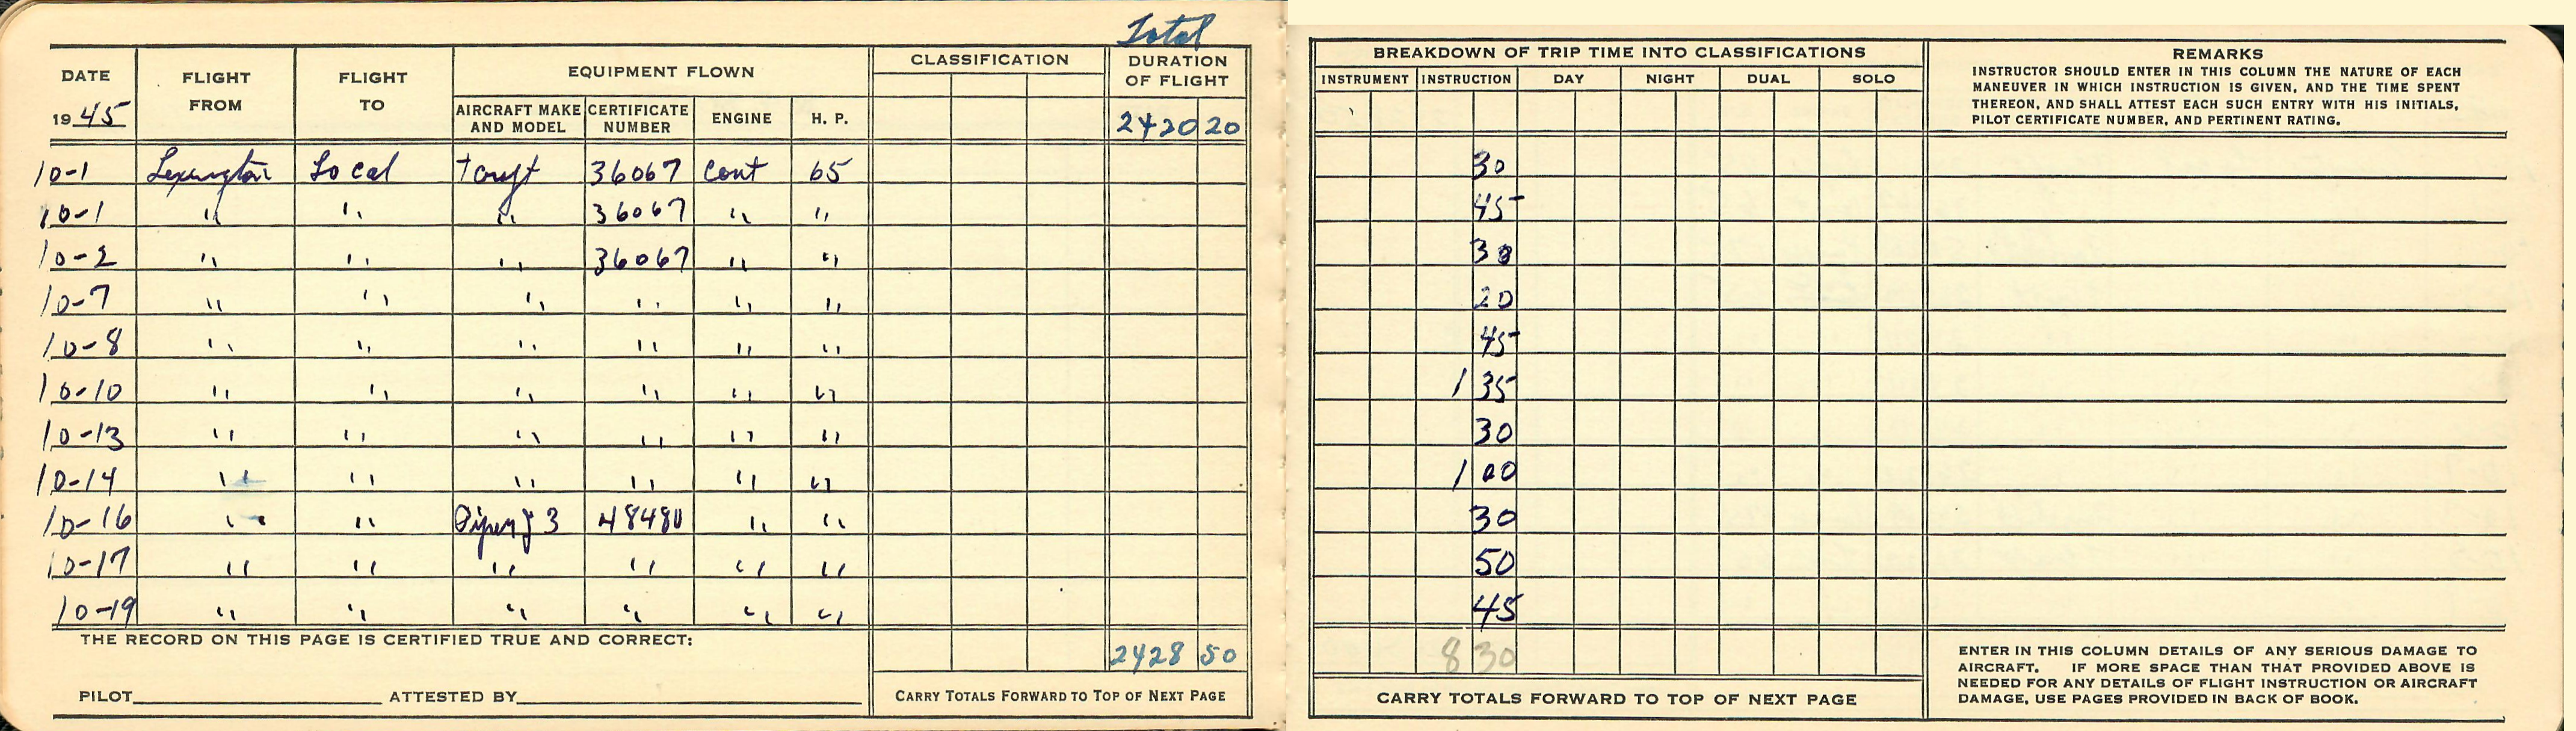 Total
DATE FLIGHT FROM FLIGHT TO EQUIPMENT FLOWN CLASSIFICATION DURATION OF FLIGHT
1945 AIRCRAFT MAKE AND MODEL CERTIFICATE NUMBER ENGINE H. P. 2420 20
10-1 Lexington Local Tcraft 36067 Cont 65
10-1 " " " 36067 " "
10-2 " " " 36067 " "
10-7 " " " " " "
10-8 " " " " " "
10-10 " " " " " "
10-13 " " " " " "
10-14 " " " " " "
10-16 " " Piper J3 48480 " "
10-17 " " " " " "
10-19 " " " " " "
THE RECORD ON THIS PAGE IS CERTIFIED TRUE AND CORRECT:
2428 50
PILOT ATTESTED BY CARRY TOTALS FORWARD TO TOP OF NEXT PAGE
BREAKDOWN OF TRIP TIME INTO CLASSIFICATIONS
INSTRUMENT INSTRUCTION DAY NIGHT DUAL SOLO
REMARKS
INSTRUCTOR SHOULD ENTER IN THIS COLUMN THE NATURE OF EACH
MANEUVER IN WHICH INSTRUCTION IS GIVEN, AND THE TIME SPENT
THEREON, AND SHALL ATTEST EACH SUCH ENTRY WITH HIS INITIALS,
PILOT CERTIFICATE NUMBER, AND PERTINENT RATING.
30
45
30
20
45
1 35
30
1 00
30
50
45
8 30
CARRY TOTALS FORWARD TO TOP OF NEXT PAGE
ENTER IN THIS COLUMN DETAILS OF ANY SERIOUS DAMAGE TO
AIRCRAFT. IF MORE SPACE THAN THAT PROVIDED ABOVE IS
NEEDED FOR ANY DETAILS OF FLIGHT INSTRUCTION OR AIRCRAFT
DAMAGE, USE PAGES PROVIDED IN BACK OF BOOK.